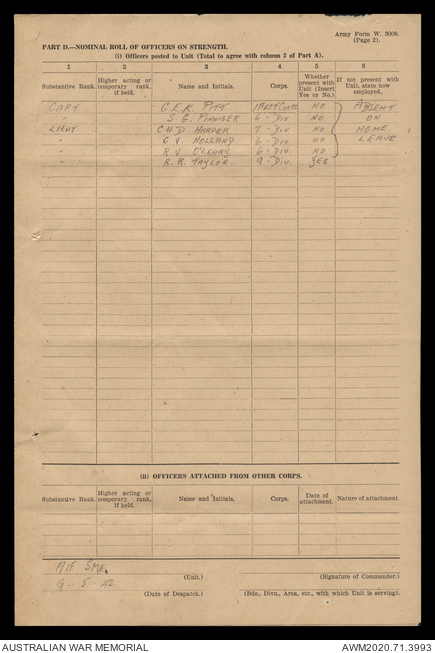 Army Form W. 3008.
(Page 2).
PART D.—NOMINAL ROLL OF OFFICERS ON STRENGTH.
(i) Officers posted to Unit (Total to agree with column 2 of Part A).
1 2 3 4 5 6
Substantive Rank. Higher acting or temporary rank, if held. Name and Initials. Corps. Whether present with Unit (Insert Yes or No.) If not present with Unit, state how employed.
CAPT C.E.K. PITT 1 AUST CORPS NO ABSENT
" S. G. 6 " DIV NO ON
LIEUT C.H.D. HARDER 7 " DIV NO HOME
" C V. HOLLAND 6 " DIV NO LEAVE
" R V. O'LEARY 6 " DIV NO
" R. R. TAYLOR 9 " DIV. YES
(ii) OFFICERS ATTACHED FROM OTHER CORPS.
Substantive Rank. Higher acting or temporary rank, if held. Name and Initials. Corps. Date of attachment. Nature of attachment.
AIF SME.
9 - 5 - 42.
(Unit.) (Signature of Commander.)
(Date of Despatch.) (Bde., Divn., Area, etc., with which Unit is serving).
AUSTRALIAN WAR MEMORIAL AWM2020.71.3993